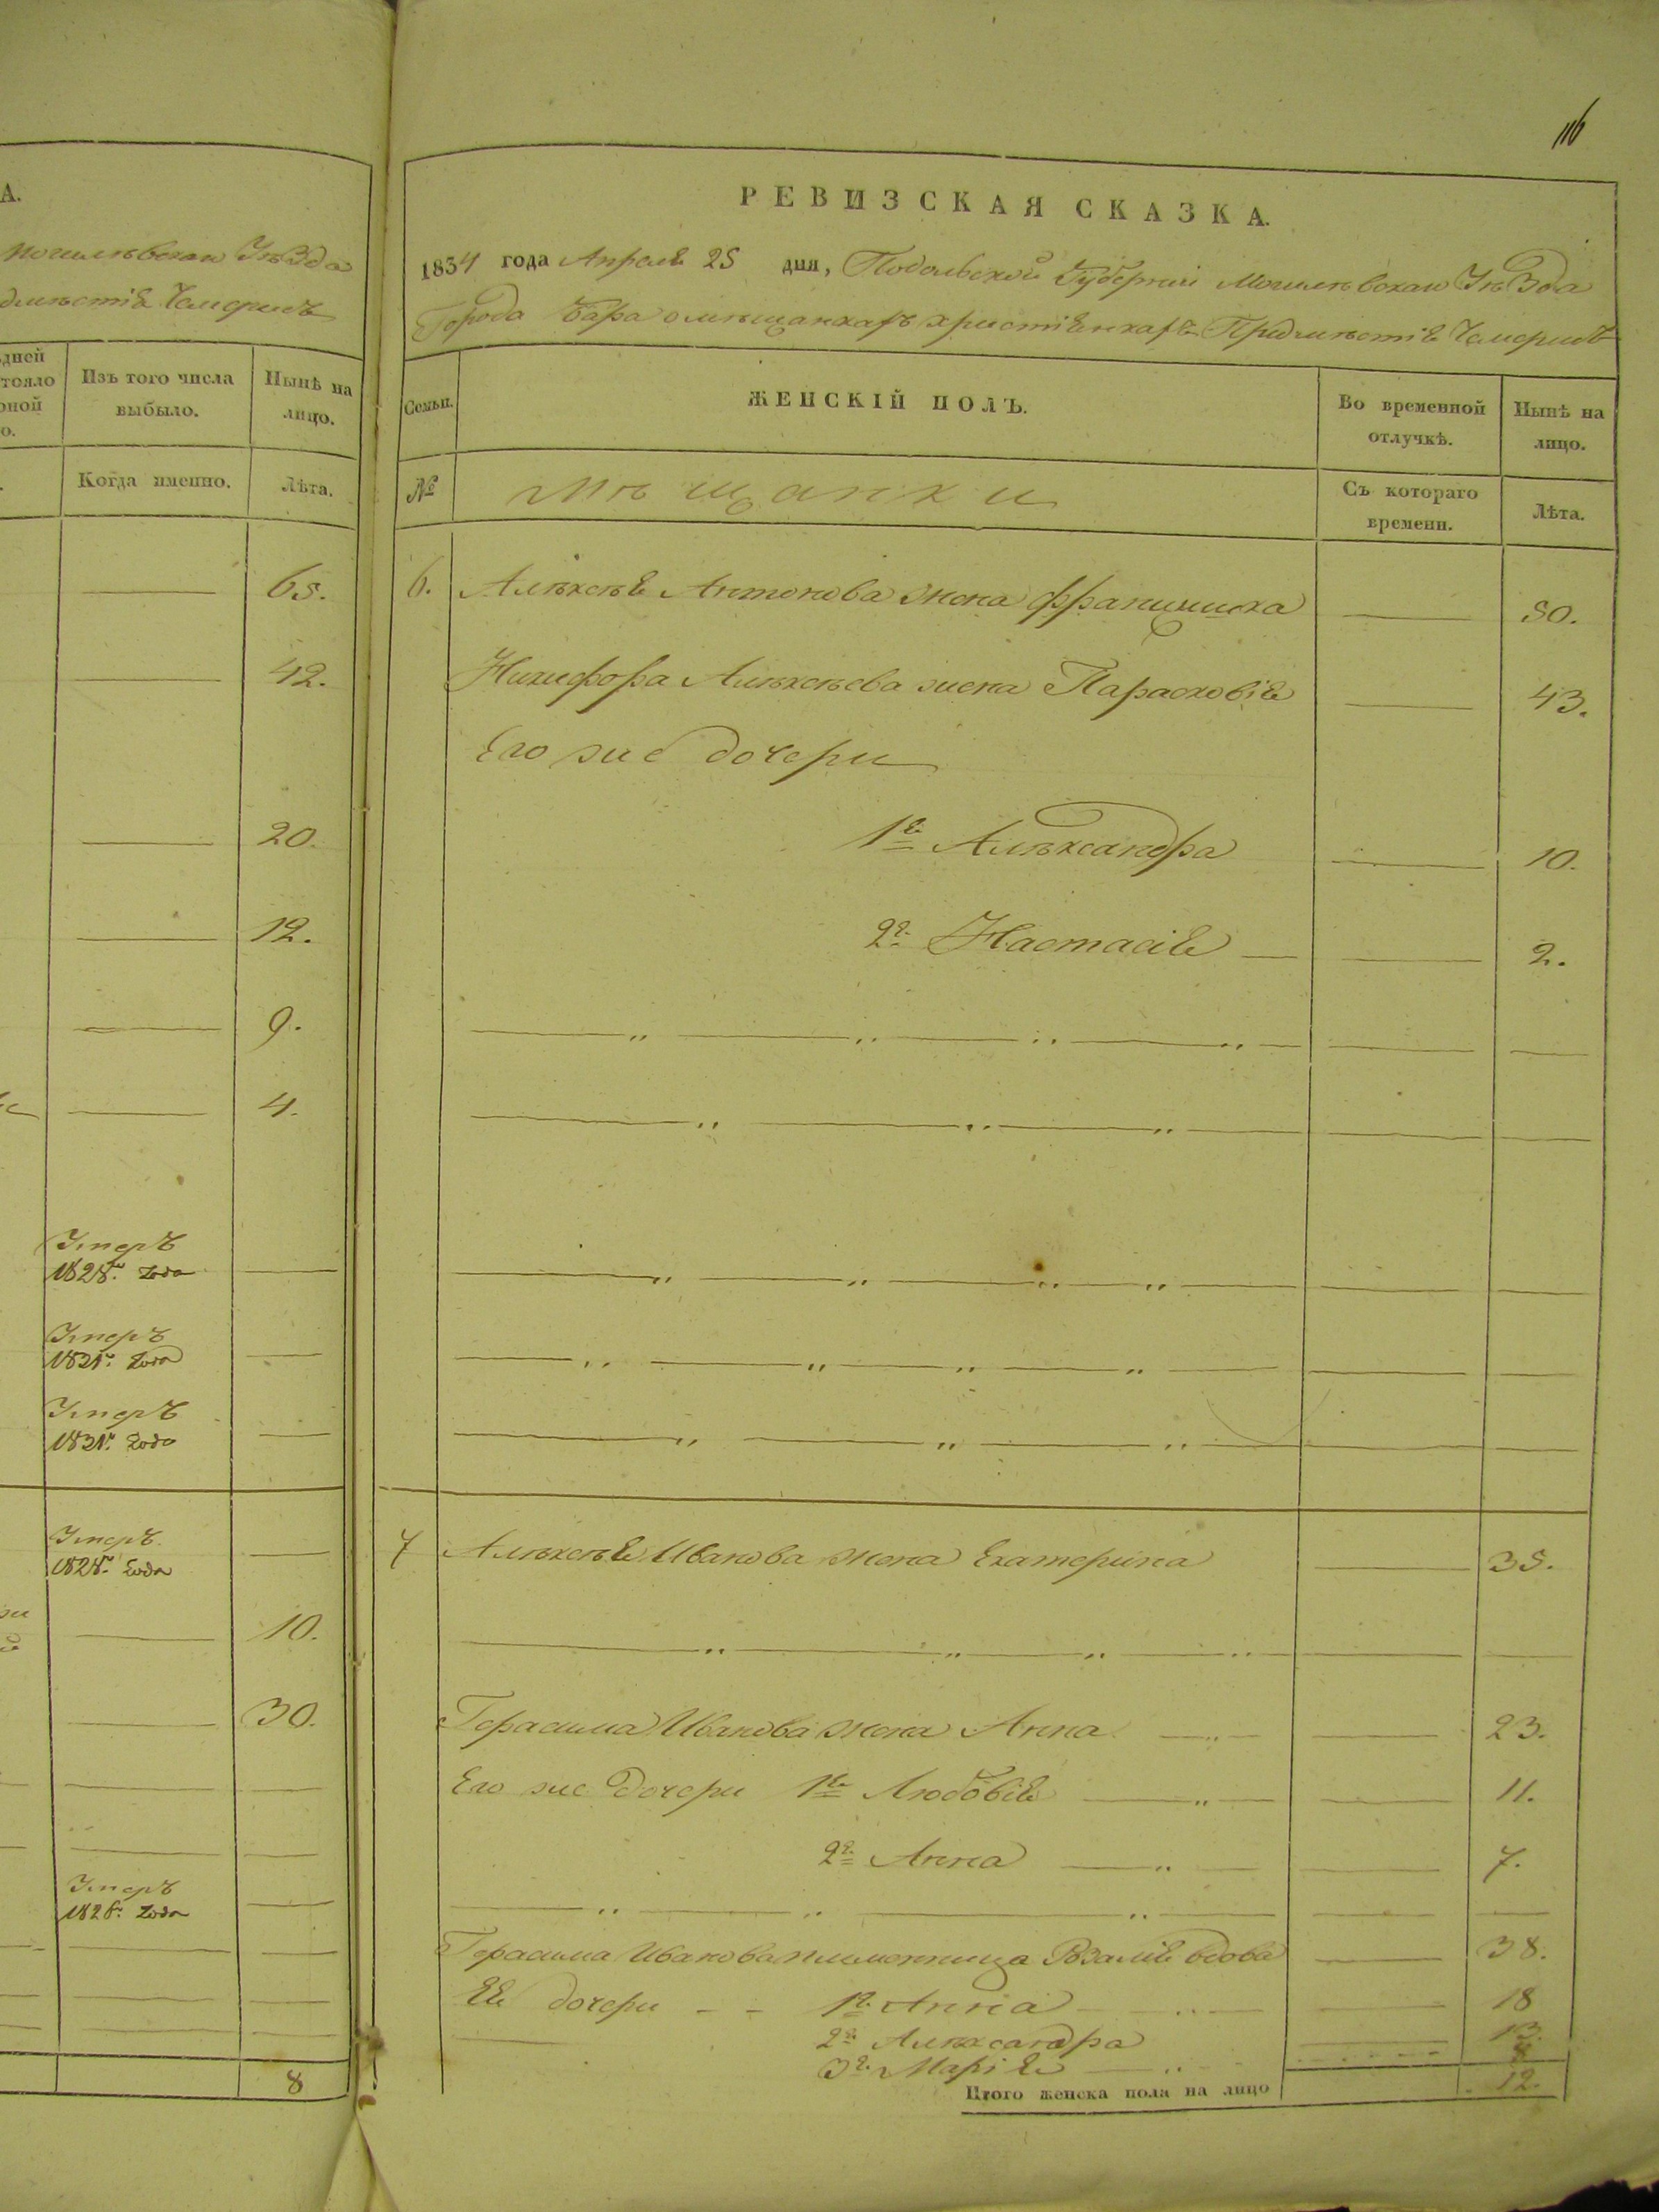 116
А.
Могилѣвскаго Уѣзда
дмѣстія Чемерисъ
дней
тояло
оной
о.
Изъ того числа
выбыло.
Нынѣ на
лицо.
Когда именно.
Лѣта.
65.
42.
20.
12.
9.
4.
Умеръ
1828го года
Умеръ
1831го года
Умеръ
1831го года
Умеръ
1828го года
10.
30.
Умеръ
1828: года
8
РЕВИЗСКАЯ СКАЗКА.
1834 года Апреля 25 дня, Подольской Губерніи Могилѣвскаго Уѣзда
Города Бара о мѣщанкахъ христіянкахъ Придмѣстія Чемерисъ
Семьи.
ЖЕНСКІЙ ПОЛЪ.
Во временной
отлучкѣ.
Нынѣ на
лицо.
№
Мѣщанки
Съ котораго
времени.
Лѣта.
6. Алѣксѣя Антонова жена Францишка 50.
Никифора Алѣксѣева жена Парасковія 43.
Его же дочери
1я Алѣксандра 10.
2я Настасія 2.
7 Алѣксѣя Иванова жена Екатерина 35.
Герасима Иванова жена Анна 23.
Его же дочери 1я Любовія 11.
2я Анна 7.
Герасима Иванова племенница Розалія вдова 38.
Ея дочери 1я Анна 18
2я Алѣксандра 13.
3я Марія 8
Итого женска пола на лицо 12.